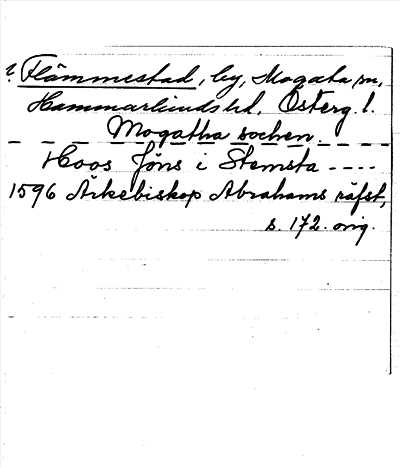 ? Flämmestad, by, Mogata sn,
Hammarkinds hd. Österg. l.
Mogatha sochen.
Hoos Jöns i Stemsta ----
1596 Ärkebiskop Abrahams räfst,
s. 172. orig.